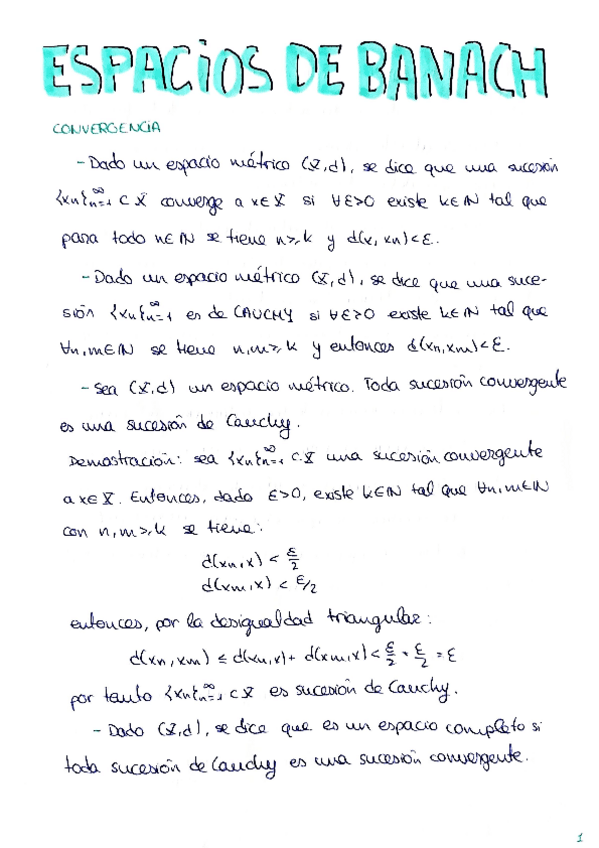 ESPACIOS DE BANACH
CONVERGENCIA
- Dado un espacio métrico (X,d), se dice que una sucesión
{xn}∞n=1 ⊂ X converge a x∈X si ∀ε>0 existe k∈ℕ tal que
para todo n∈ℕ se tiene n≥k y d(x,xn)<ε.
- Dado un espacio métrico (X,d), se dice que una suce-
sión {xn}∞n=1 es de CAUCHY si ∀ε>0 existe k∈ℕ tal que
∀n,m∈ℕ se tiene n,m≥k y entonces d(xn,xm)<ε.
- Sea (X,d) un espacio métrico. Toda sucesión convergente
es una sucesión de Cauchy.
Demostración: sea {xn}∞n=1 ⊂ X una sucesión convergente
a x∈X. Entonces, dado ε>0, existe k∈ℕ tal que ∀n,m∈ℕ
con n,m≥k se tiene:
d(xn,x) < ε/2
d(xm,x) < ε/2
entonces, por la desigualdad triangular:
d(xn,xm) ≤ d(xn,x)+ d(xm,x) < ε/2 + ε/2 = ε
por tanto {xn}∞n=1 ⊂ X es sucesión de Cauchy.
- Dado (X,d), se dice que es un espacio completo si
toda sucesión de Cauchy es una sucesión convergente.
1